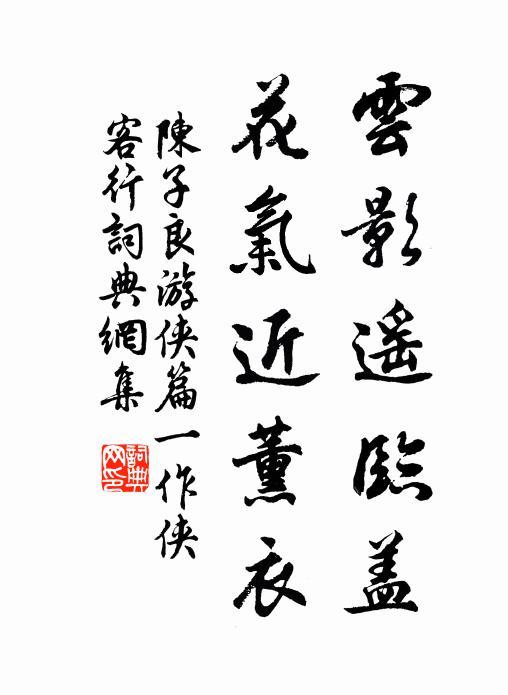 雲影遥臨盖
花氣近薰衣
陳子良游俠篇一作俠
客行詞典網集
詞典网印